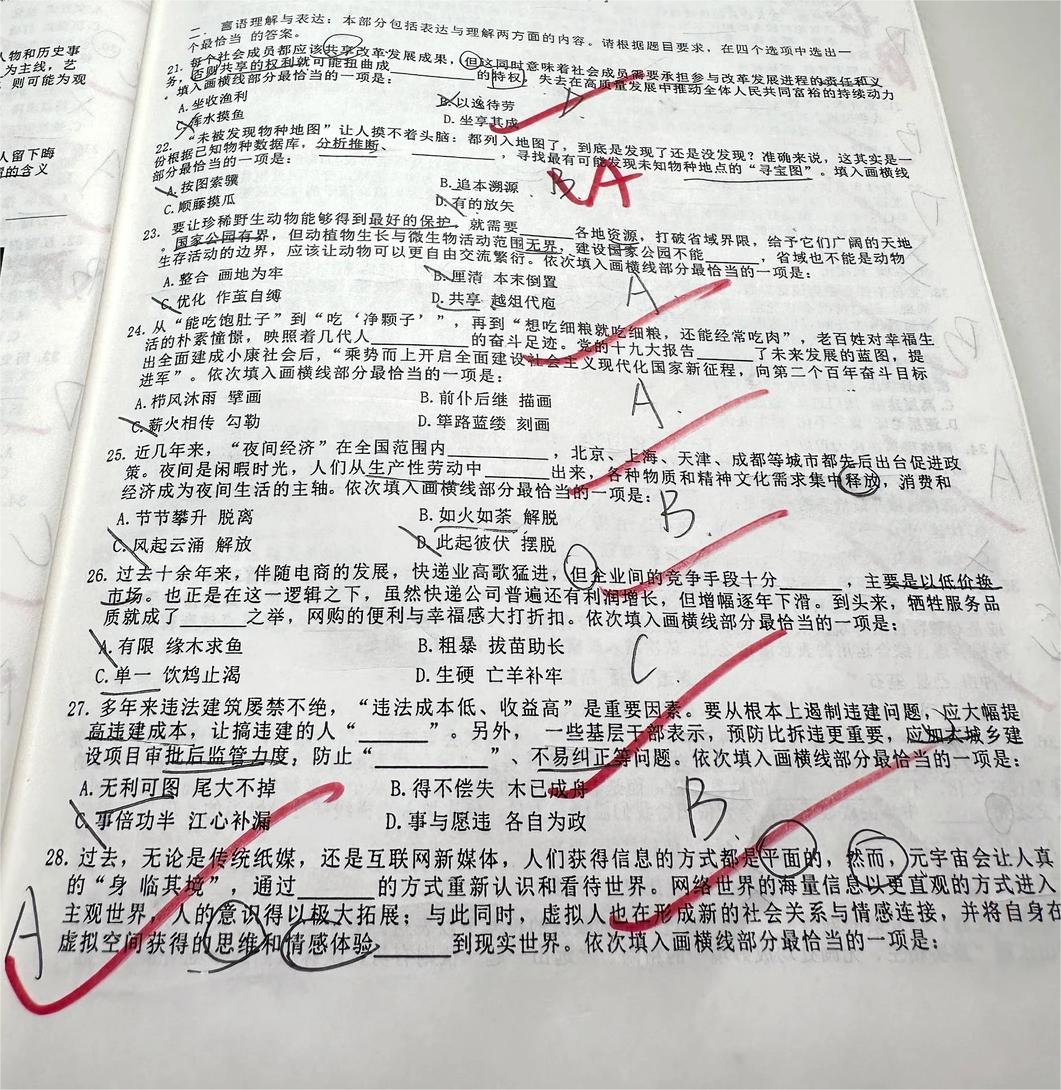 人物和历史事
为主线，艺
则可能为观
人留下晦
的含义
二、言语理解与表达：本部分包括表达与理解两方面的内容。请根据题目要求，在四个选项中选出一
个最恰当 的答案。
21. 每个社会成员都应该共享改革发展成果，但这同时意味着社会成员需要承担参与改革发展进程的责任和义
务，否则共享的权利就可能扭曲成________的特权，失去在高质量发展中推动全体人民共同富裕的持续动力
。填入画横线部分最恰当的一项是：
A. 坐收渔利 B. 以逸待劳
C. 浑水摸鱼 D. 坐享其成
D
22. “未被发现物种地图”让人摸不着头脑：都列入地图了，到底是发现了还是没发现？准确来说，这其实是一
份根据已知物种数据库，分析推断、________，寻找最有可能发现未知物种地点的“寻宝图”。填入画横线
部分最恰当的一项是：
A. 按图索骥 B. 追本溯源
C. 顺藤摸瓜 D. 有的放矢
B. A
23. 要让珍稀野生动物能够得到最好的保护，就需要______各地资源，打破省域界限，给予它们广阔的天地
。国家公园有界，但动植物生长与微生物活动范围无界，建设国家公园不能______，省域也不能是动物
生存活动的边界，应该让动物可以更自由交流繁衍。依次填入画横线部分最恰当的一项是：
A. 整合 画地为牢 B. 厘清 本末倒置
C. 优化 作茧自缚 D. 共享 越俎代庖
A
24. 从“能吃饱肚子”到“吃‘净颗子’”，再到“想吃细粮就吃细粮，还能经常吃肉”，老百姓对幸福生
活的朴素憧憬，映照着几代人__________的奋斗足迹。党的十九大报告______了未来发展的蓝图，提
出全面建成小康社会后，“乘势而上开启全面建设社会主义现代化国家新征程，向第二个百年奋斗目标
进军”。依次填入画横线部分最恰当的一项是：
A. 栉风沐雨 擘画 B. 前仆后继 描画
C. 薪火相传 勾勒 D. 筚路蓝缕 刻画
A.
25. 近几年来，“夜间经济”在全国范围内__________，北京、上海、天津、成都等城市都先后出台促进政
策。夜间是闲暇时光，人们从生产性劳动中______出来，各种物质和精神文化需求集中释放，消费和
经济成为夜间生活的主轴。依次填入画横线部分最恰当的一项是：
A. 节节攀升 脱离 B. 如火如荼 解脱
C. 风起云涌 解放 D. 此起彼伏 摆脱
B.
26. 过去十余年来，伴随电商的发展，快递业高歌猛进，但企业间的竞争手段十分______，主要是以低价换
市场。也正是在这一逻辑之下，虽然快递公司普遍还有利润增长，但增幅逐年下滑。到头来，牺牲服务品
质就成了______之举，网购的便利与幸福感大打折扣。依次填入画横线部分最恰当的一项是：
A. 有限 缘木求鱼 B. 粗暴 拔苗助长
C. 单一 饮鸩止渴 D. 生硬 亡羊补牢
C.
27. 多年来违法建筑屡禁不绝，“违法成本低、收益高”是重要因素。要从根本上遏制违建问题，应大幅提
高违建成本，让搞违建的人“______”。另外， 一些基层干部表示，预防比拆违更重要，应加大城乡建
设项目审批后监管力度，防止“__________”、不易纠正等问题。依次填入画横线部分最恰当的一项是：
A. 无利可图 尾大不掉 B. 得不偿失 木已成舟
C. 事倍功半 江心补漏 D. 事与愿违 各自为政
B.
28. 过去，无论是传统纸媒，还是互联网新媒体，人们获得信息的方式都是平面的，然而，元宇宙会让人真
的“身 临其境”，通过______的方式重新认识和看待世界。网络世界的海量信息以更直观的方式进入
主观世界，人的意识得以极大拓展；与此同时，虚拟人也在形成新的社会关系与情感连接，并将自身在
虚拟空间获得的思维和情感体验______到现实世界。依次填入画横线部分最恰当的一项是：
A